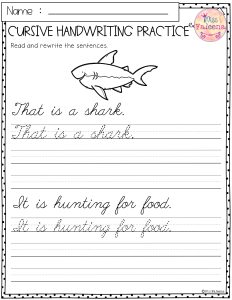 Name :
Miss Faleena
CURSIVE HANDWRITING PRACTICE
Read and rewrite the sentences.
That is a shark.
That is a shark.
It is hunting for food.
It is hunting for food.